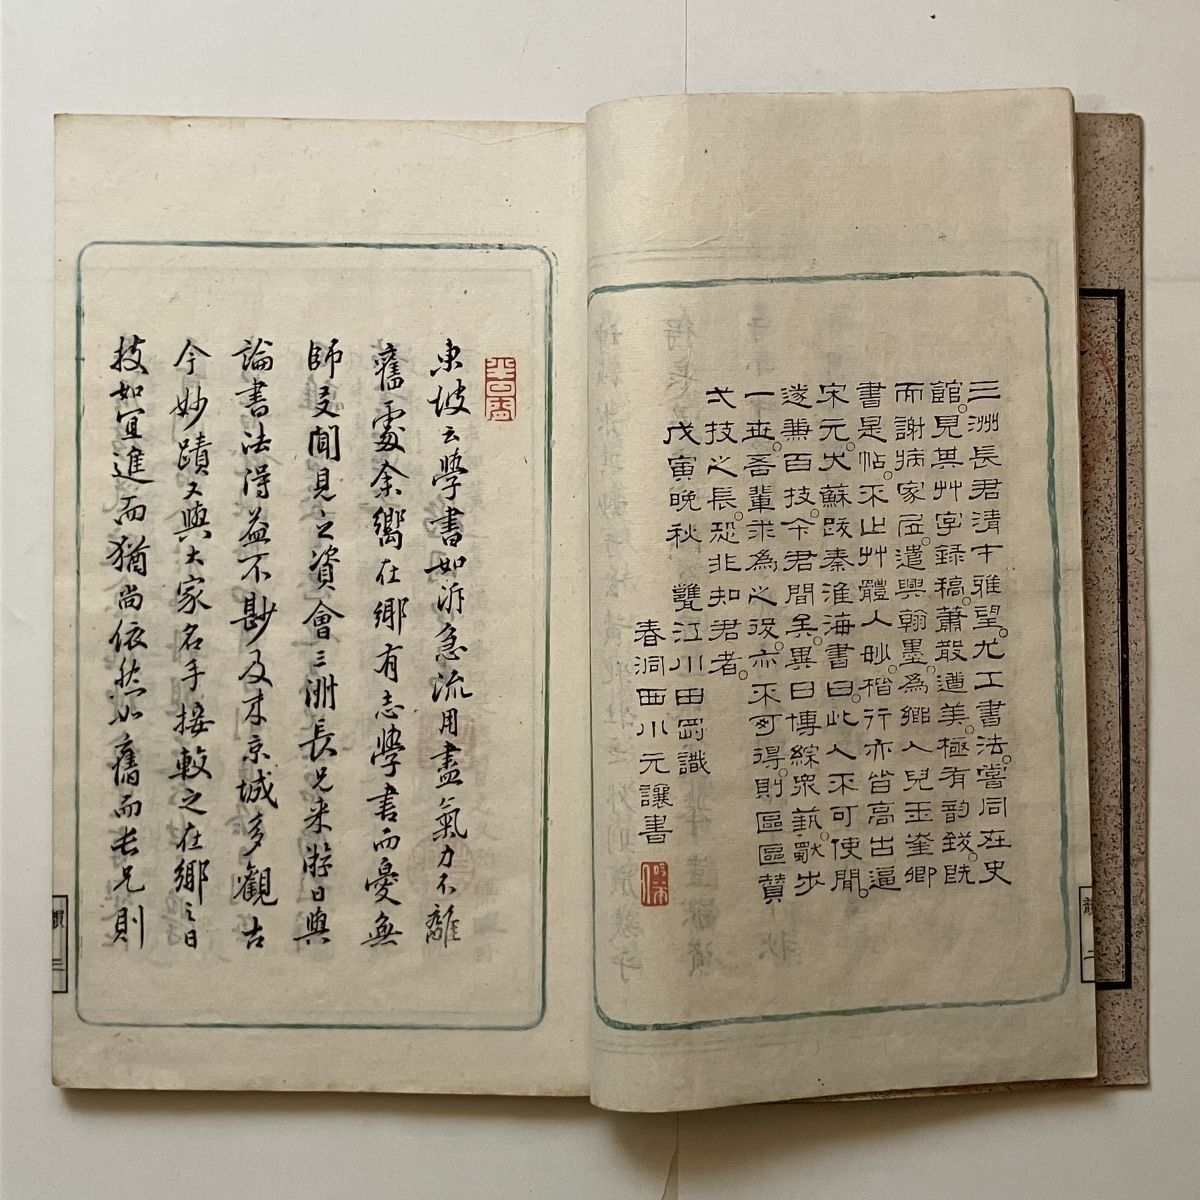 三洲長君清才雅望。尤工書法。嘗同在史
館。見其艸字録稿。蕭散遒美。極有韵致。既
而謝病家居。遣興翰墨。為鄉人兒玉奎卿
書是帖。不止艸體入妙。楷行亦皆高古逼
宋元。大蘇跋秦淮海書曰。此人不可使閒。
遂兼百技。今君間矣。異日博綜衆藝。獻步
一世。吾輩求為之役。亦不可得。則區區贊
弌技之長。恐非知君者。
戊寅晩秋 甕江川田剛識
春洞西川元讓書
東坡云學書如泝急流用盡氣力不離
舊處余嚮在鄉有志學書而憂無
師友聞見之資會三洲長兄來游日與
論書法得益不尠及來京城多觀古
今妙蹟又與大家名手接較之在鄉之日
技如宜進而猶尚依然如舊而長兄則
二
三